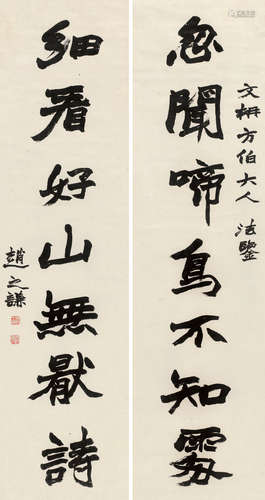 文枬方伯大人 法鑒
忽聞啼鳥不知處
細看好山無猒詩
趙之謙